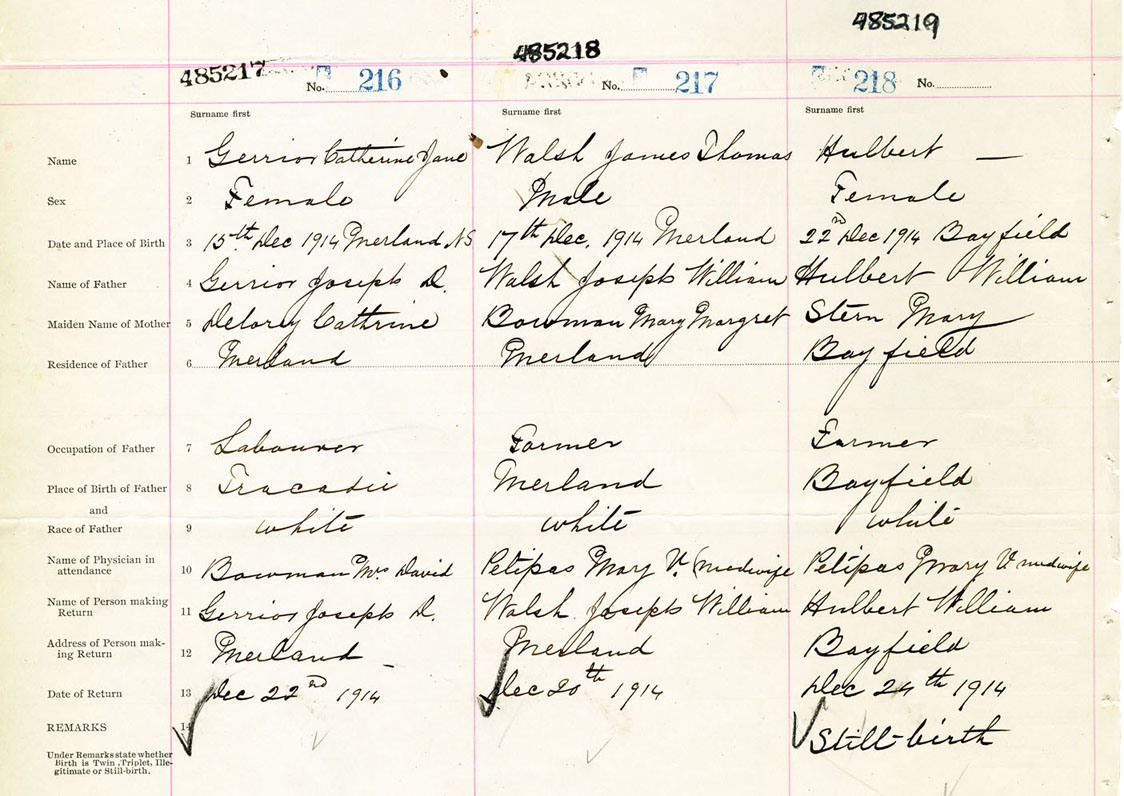 485217 485218 485219
No. 216 No. 217 218 No.
Surname first Surname first Surname first
Name 1 Gerrior Catherine Jane Walsh James Thomas Hulbert —
Sex 2 Female Male Female
Date and Place of Birth 3 15th Dec 1914 Merland NS 17th Dec, 1914 Merland 22nd Dec 1914 Bayfield
Name of Father 4 Gerrior Joseph D. Walsh Joseph William Hulbert William
Maiden Name of Mother 5 Delorey Cathrine Bowman Mary Margret Stern Mary
Residence of Father 6 Merland Merland Bayfield
Occupation of Father 7 Labourer Farmer Farmer
Place of Birth of Father 8 Tracadie Merland Bayfield
and
Race of Father 9 white white white
Name of Physician in
attendance 10 Bowman Mrs David Petipas Mary V. (midwife Petipas Mary V midwife
Name of Person making
Return 11 Gerrior Joseph D. Walsh Joseph William Hulbert William
Address of Person mak-
ing Return 12 Merland Merland Bayfield
Date of Return 13 Dec 22nd 1914 Dec 20th 1914 Dec 24th 1914
REMARKS 14 Still-birth
Under Remarks state whether
Birth is Twin, Triplet, Ille-
gitimate or Still-birth.